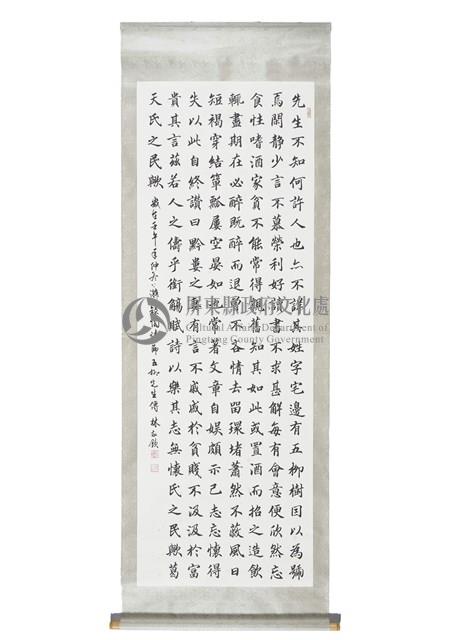 先生不知何許人也亦不詳其姓字宅邊有五柳樹因以為號
焉閑靜少言不慕榮利好讀書不求甚解每有會意便欣然忘
食性嗜酒家貧不能常得親舊知其如此或置酒而招之造飲
輒盡期在必醉既醉而退曾不吝情去留環堵蕭然不蔽風日
短褐穿結簞瓢屢空晏如也常著文章自娛頗示己志忘懷得
失以此自終讚曰黔婁之有言不戚戚於貧賤不汲汲於富
貴其言茲若人之儔乎銜觴賦詩以樂其志無懷氏之民歟葛
天氏之民歟 歲壬午年仲 節五柳先生傳 林
屏東縣政府文化處
Cultural Affairs Department of
Pingtung County Government